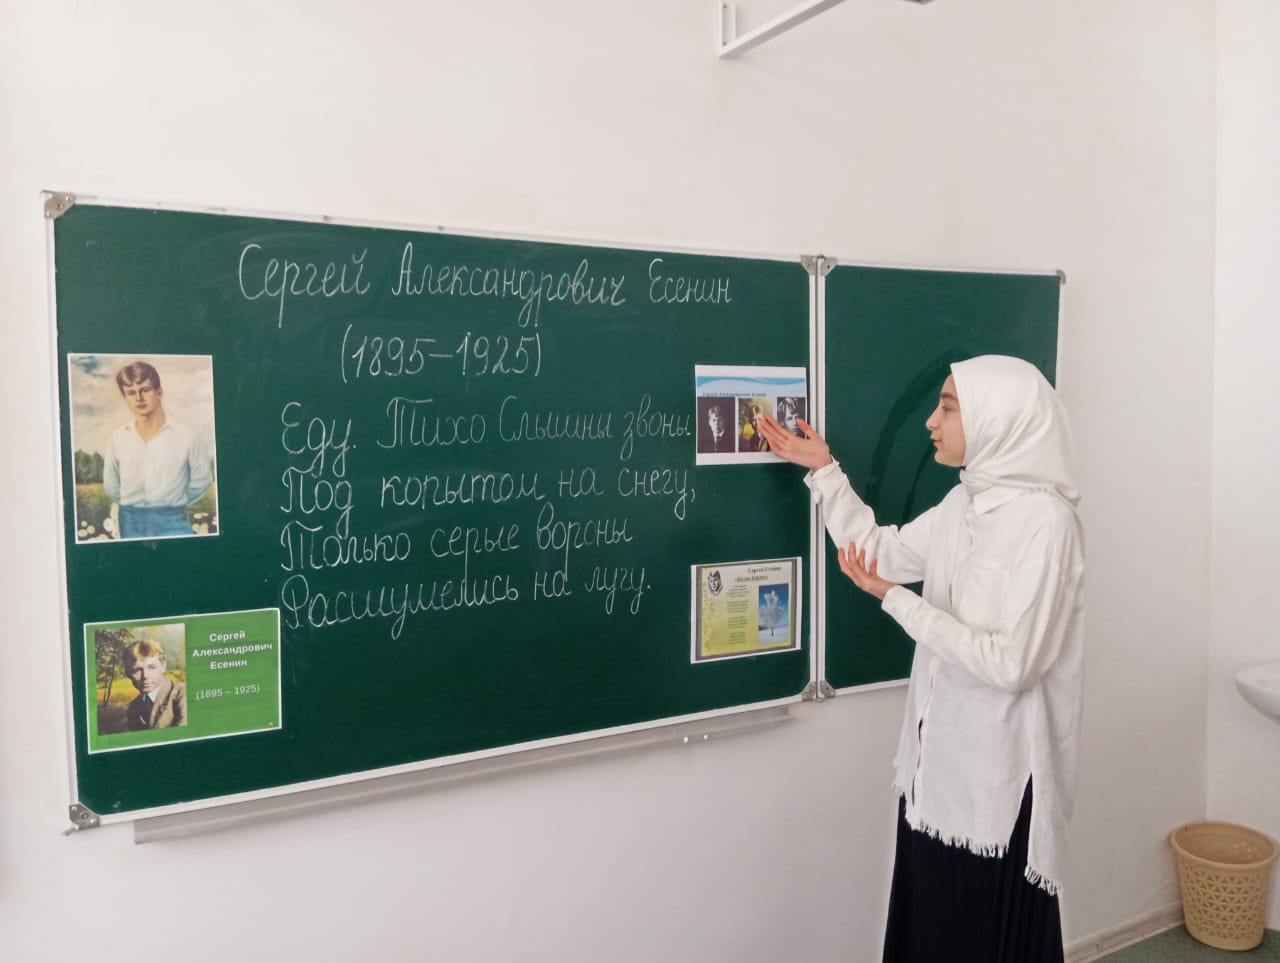 Сергей Александрович Есенин
(1895–1925)
Еду. Тихо Слышны звоны
Под копытом на снегу,
Только серые вороны
Расшумелись на лугу.
Сергей
Александрович
Есенин
(1895 – 1925)
Сергей Александрович Есенин
Сергей Есенин
«Белая береза»